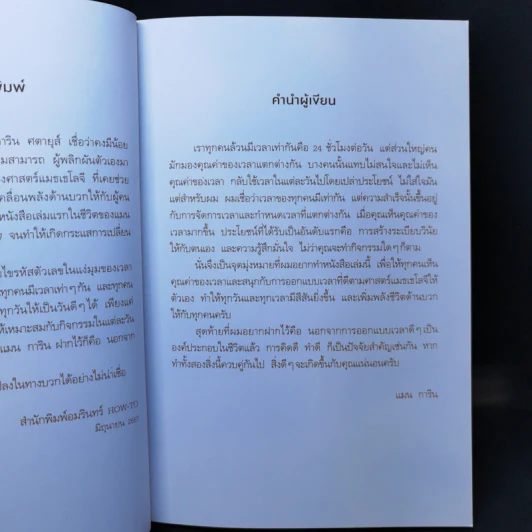 มพ์
าริน ศตายุส์ เชื่อว่าคงมีน้อย
มสามารถ ผู้พลิกผันตัวเองมา
งศาสตร์แมธเธโลจี ที่เคยช่วย
คลื่อนพลังด้านบวกให้กับผู้คน
หนังสือเล่มแรกในชีวิตของแมน
จนทำให้เกิดกระแสการเปลี่ยน
ไขรหัสตัวเลขในแง่มุมของเวลา
ทุกคนมีเวลาเท่าๆ กัน และทุกคน
ทุกวันให้เป็นวันดีๆ ได้ เพียงแค่
ให้เหมาะสมกับกิจกรรมในแต่ละวัน
แมน การิน ฝากไว้ก็คือ นอกจาก
ปลงในทางบวกได้อย่างไม่น่าเชื่อ
สำนักพิมพ์อมรินทร์ HOW-TO
มิถุนายน
คำนำผู้เขียน
เราทุกคนล้วนมีเวลาเท่ากันคือ 24 ชั่วโมงต่อวัน แต่ส่วนใหญ่คน
มักมองคุณค่าของเวลาแตกต่างกัน บางคนนั้นแทบไม่สนใจและไม่เห็น
คุณค่าของเวลา กลับใช้เวลาในแต่ละวันไปโดยเปล่าประโยชน์ ไม่ใส่ใจมัน
แต่สำหรับผม ผมเชื่อว่าเวลาของทุกคนมีเท่ากัน แต่ความสำเร็จนั้นขึ้นอยู่
กับการจัดการเวลาและกำหนดเวลาที่แตกต่างกัน เมื่อคุณเห็นคุณค่าของ
เวลามากขึ้น ประโยชน์ที่ได้รับเป็นอันดับแรกคือ การสร้างระเบียบวินัย
ให้กับตนเอง และความรู้สึกมั่นใจ ไม่ว่าคุณจะทำกิจกรรมใดๆ ก็ตาม
นั่นจึงเป็นจุดมุ่งหมายที่ผมอยากทำหนังสือเล่มนี้ เพื่อให้ทุกคนเห็น
คุณค่าของเวลาและสนุกกับการออกแบบเวลาที่ดีตามศาสตร์แมธเธโลจีให้
ตัวเอง ทำให้ทุกวันและทุกเวลามีสีสันยิ่งขึ้น และเพิ่มพลังชีวิตด้านบวก
ให้กับทุกคนครับ
สุดท้ายที่ผมอยากฝากไว้คือ นอกจากการออกแบบเวลาดีๆ เป็น
องค์ประกอบในชีวิตแล้ว การคิดดี ทำดี ก็เป็นปัจจัยสำคัญเช่นกัน หาก
ทำทั้งสองสิ่งนี้ควบคู่กันไป สิ่งดีๆ จะเกิดขึ้นกับคุณแน่นอนครับ
แมน การิน